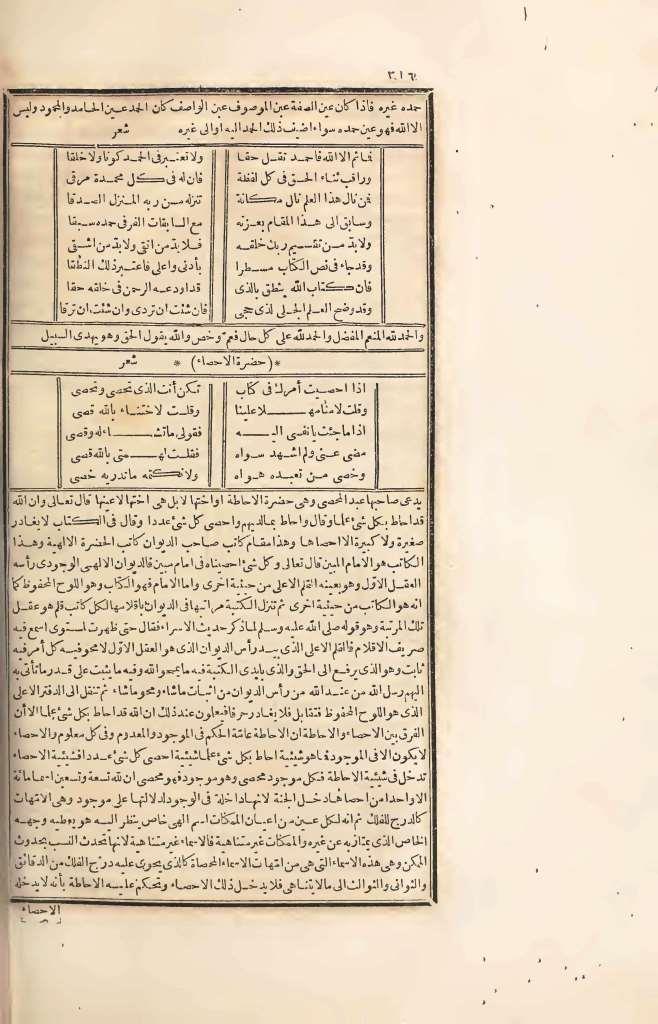 ٣١٦
حمده غيره فاذا كان عين الصفة عين الموصوف عين الواصف كان الحمد عين الحامد والمحمود وليس
الا الله فهو عين حمده سواء اضيف ذلك الحمد اليه أو الى غيره شعر
فما ثم الا الله فاحمد تقل حقا ولا تعتبر فى الحمد كونا ولا خلقا
وراقب ثناء الحق فى كل لفظة فان له فى كل محمدة مرقى
فمن نال هذا العلم نال مكانة تنزله من ربه المنزل الصدقا
وسابق الى هذا المقام بعزته مع السابقات الغر فى حمده سبقا
ولا بد من تقسيم ربك خلقه فلا بد من اتقى ولا بد من اشقى
وقد جاء فى نص الكتاب مسطرا بأدنى واعلى فاعتبر ذلك النطقا
فان كتاب الله ينطق بالذى قد اودعه الرحمن فى خلقه حقا
وقد وضح العلم الجلى لذى حجى فان شئت ان تردى وان شئت ان ترقا
والحمد لله المنعم المفضل والحمد لله على كل حال فعم وخص والله يقول الحق وهو يهدى السبيل
*(حضرة الاحصاء)* * شعر
اذا احصيت أمرك فى كتاب تكن أنت الذى تحصى وتحصى
وقلت لا منا مهـلا علينا وقلت لاختناء بالله قصى
اذا ما جئت يا نفسى اليـه فقولى ما تشـاء له وقصى
مضى عنى ولم اشهد سواه فقلت لهـا متى بالله قصى
وخصى من تعبده هواه ولا تكتمه ما ندريه خصى
يدعى صاحبها عبد المحصى وهى حضرة الاحاطة او اختها لا بل هى اختها لا عينها قال تعالى وان الله
قد احاط بكل شئ علما وقال واحاط بما لديهم واحصى كل شئ عددا وقال فى الكتاب لا يغادر
صغيرة ولا كبيرة الا احصاها وهذا مقام كاتب صاحب الديوان كاتب الحضرة الالهية وهذا
الكاتب هو الامام المبين قال تعالى وكل شئ احصيناه فى امام مبين فالديوان الالهى الوجودى رأسه
العقل الاول وهو بعينه القلم الاعلى من حيثية أخرى واما الامام فهو الكتاب وهو اللوح المحفوظ كما
انه هو الكاتب من حيثية اخرى ثم تنزل الكتبة مراتبها فى الديوان باقلامها لكل كاتب قلم هو عقل
تلك المرتبة وهو قوله صلى الله عليه وسلم لما ذكر حديث الاسراء فقال حتى ظهرت لمستوى اسمع فيه
صريف الاقلام فالقلم الاعلى الذى بيد رأس الديوان الذى هو العقل الاول لا محو فيه كل أمر فيه
ثابت وهو الذى يرفع الى الحق والذى بايدى الكتبة فيه ما يمحو الله وفيه ما يثبت على قدر ما تأتى به
اليهم رسل الله من عند الله من رأس الديوان من اثبات ما شاء ومحو ما شاء ثم تنقل الى الدفتر الاعلى
الذى هو اللوح المحفوظ فتقابل فلا يغادر حرفا فيعلمون عند ذلك ان الله قد احاط بكل شئ علما الا أن
الفرق بين الاحصاء والاحاطة ان الاحاطة عامة الحكم فى الموجود والمعدوم وفى كل معلوم والاحصاء
لا يكون الا فى الموجود فما هو شيئية احاط بكل شئ علما شيئية احصى كل شئ عددا فشيئية الاحصاء
تدخل فى شيئية الاحاطة فكل موجود محصى وهو موجود فهو محصى ان لله تسعة وتسعين اسما مائة
الا واحدا من احصاها دخل الجنة لانها داخلة فى الوجود لدلالتها على موجود وهى الامهات
كالدرج للفلك ثم انه لكل عين من اعيان الممكنات اسم الهى خاص ينظر اليه هو يعطيه وجهه
الخاص الذى يمتاز به عن غيره والممكنات غير متناهية فالاسماء غير متناهية لانها تحدث النسب بحدوث
الممكن وهى هذه الاسماء التى هى من امهات الاسماء المحصاة كالذى يحوى عليه درج الفلك من الدقائق
والثوانى والثوالث الى ما لا يتناهى فلا يدخل ذلك الاحصاء وتحكم عليه الاحاطة بأنه لا يدخله
الاحصاء